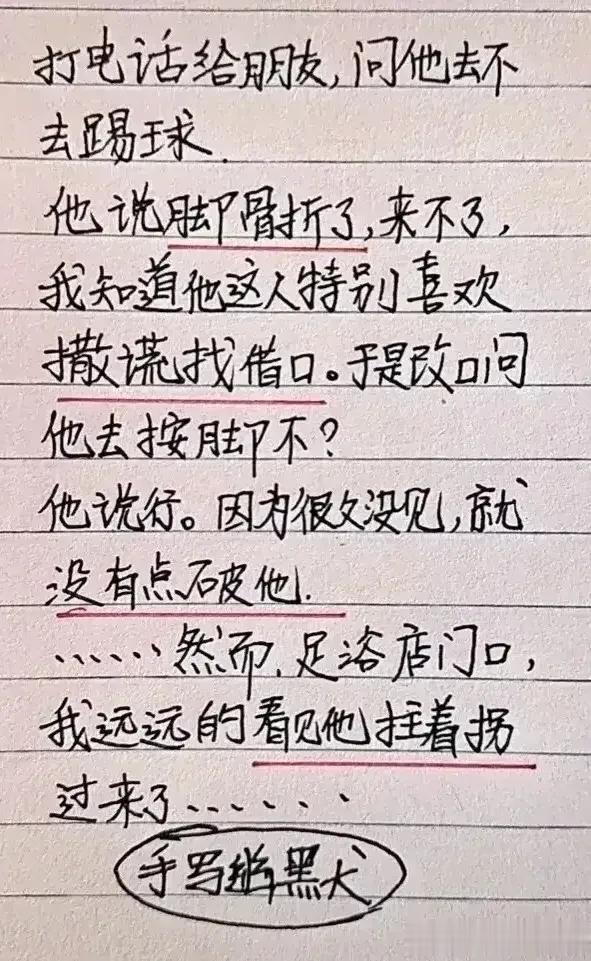 打电话给朋友,问他去不
去踢球.
他说脚骨折了,来不了,
我知道他这人特别喜欢
撒谎找借口。于是改口问
他去按脚不?
他说行。因为很久没见,就
没有点破他.
......然而.足浴店门口,
我远远的看见他拄着拐
过来了......
手写 黑犬